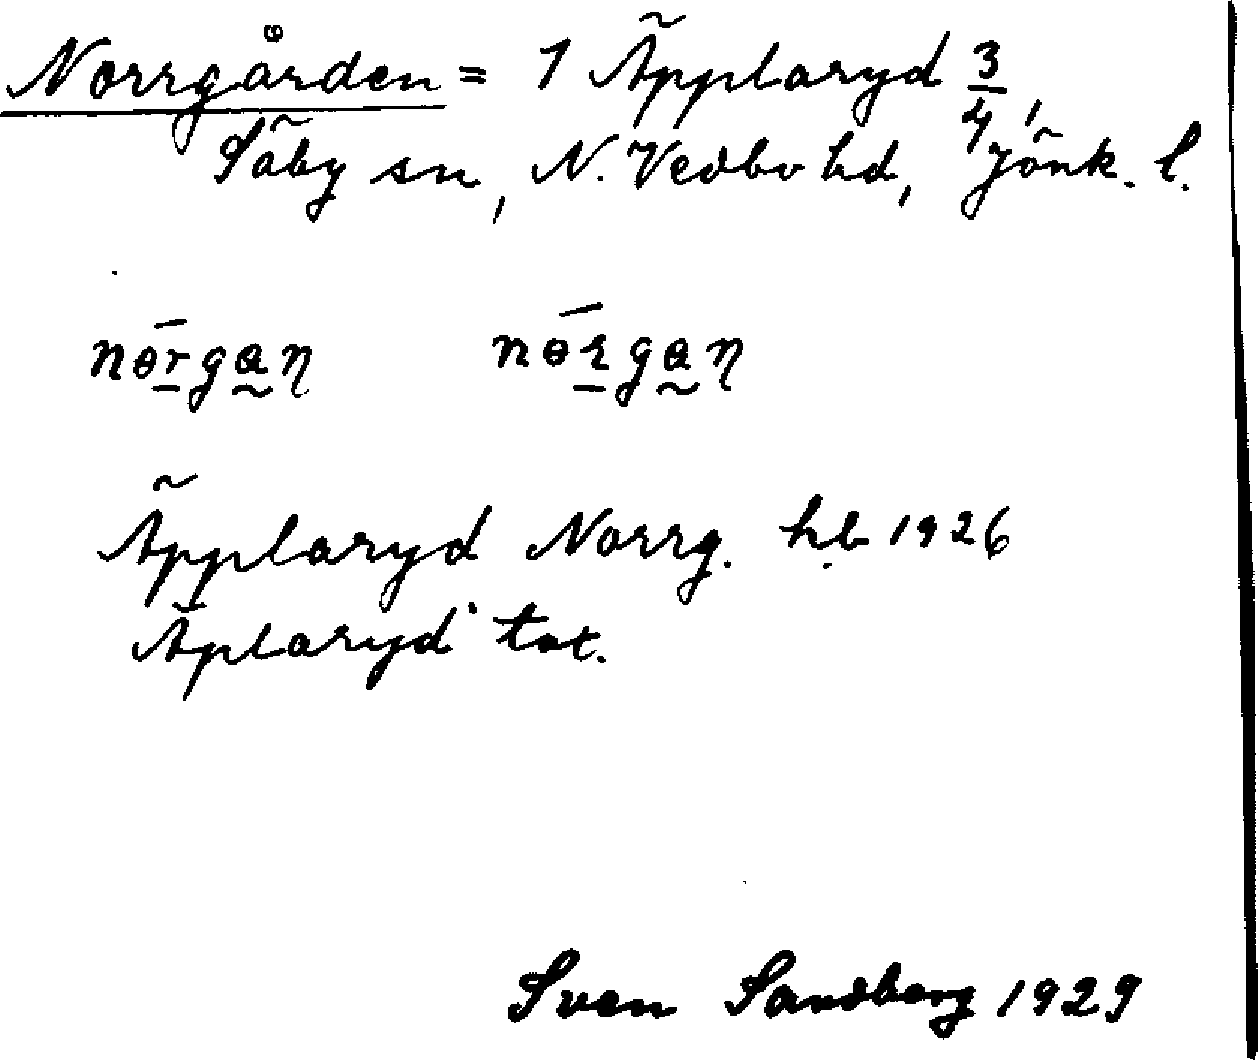 Norrgården = 1 Äpplaryd 3/4,
Säby sn, N. Vedbo hd, Jönk. l.
Äpplaryd Norrg. hb 1926
Äplaryd tot.
Sven Sandberg 1929